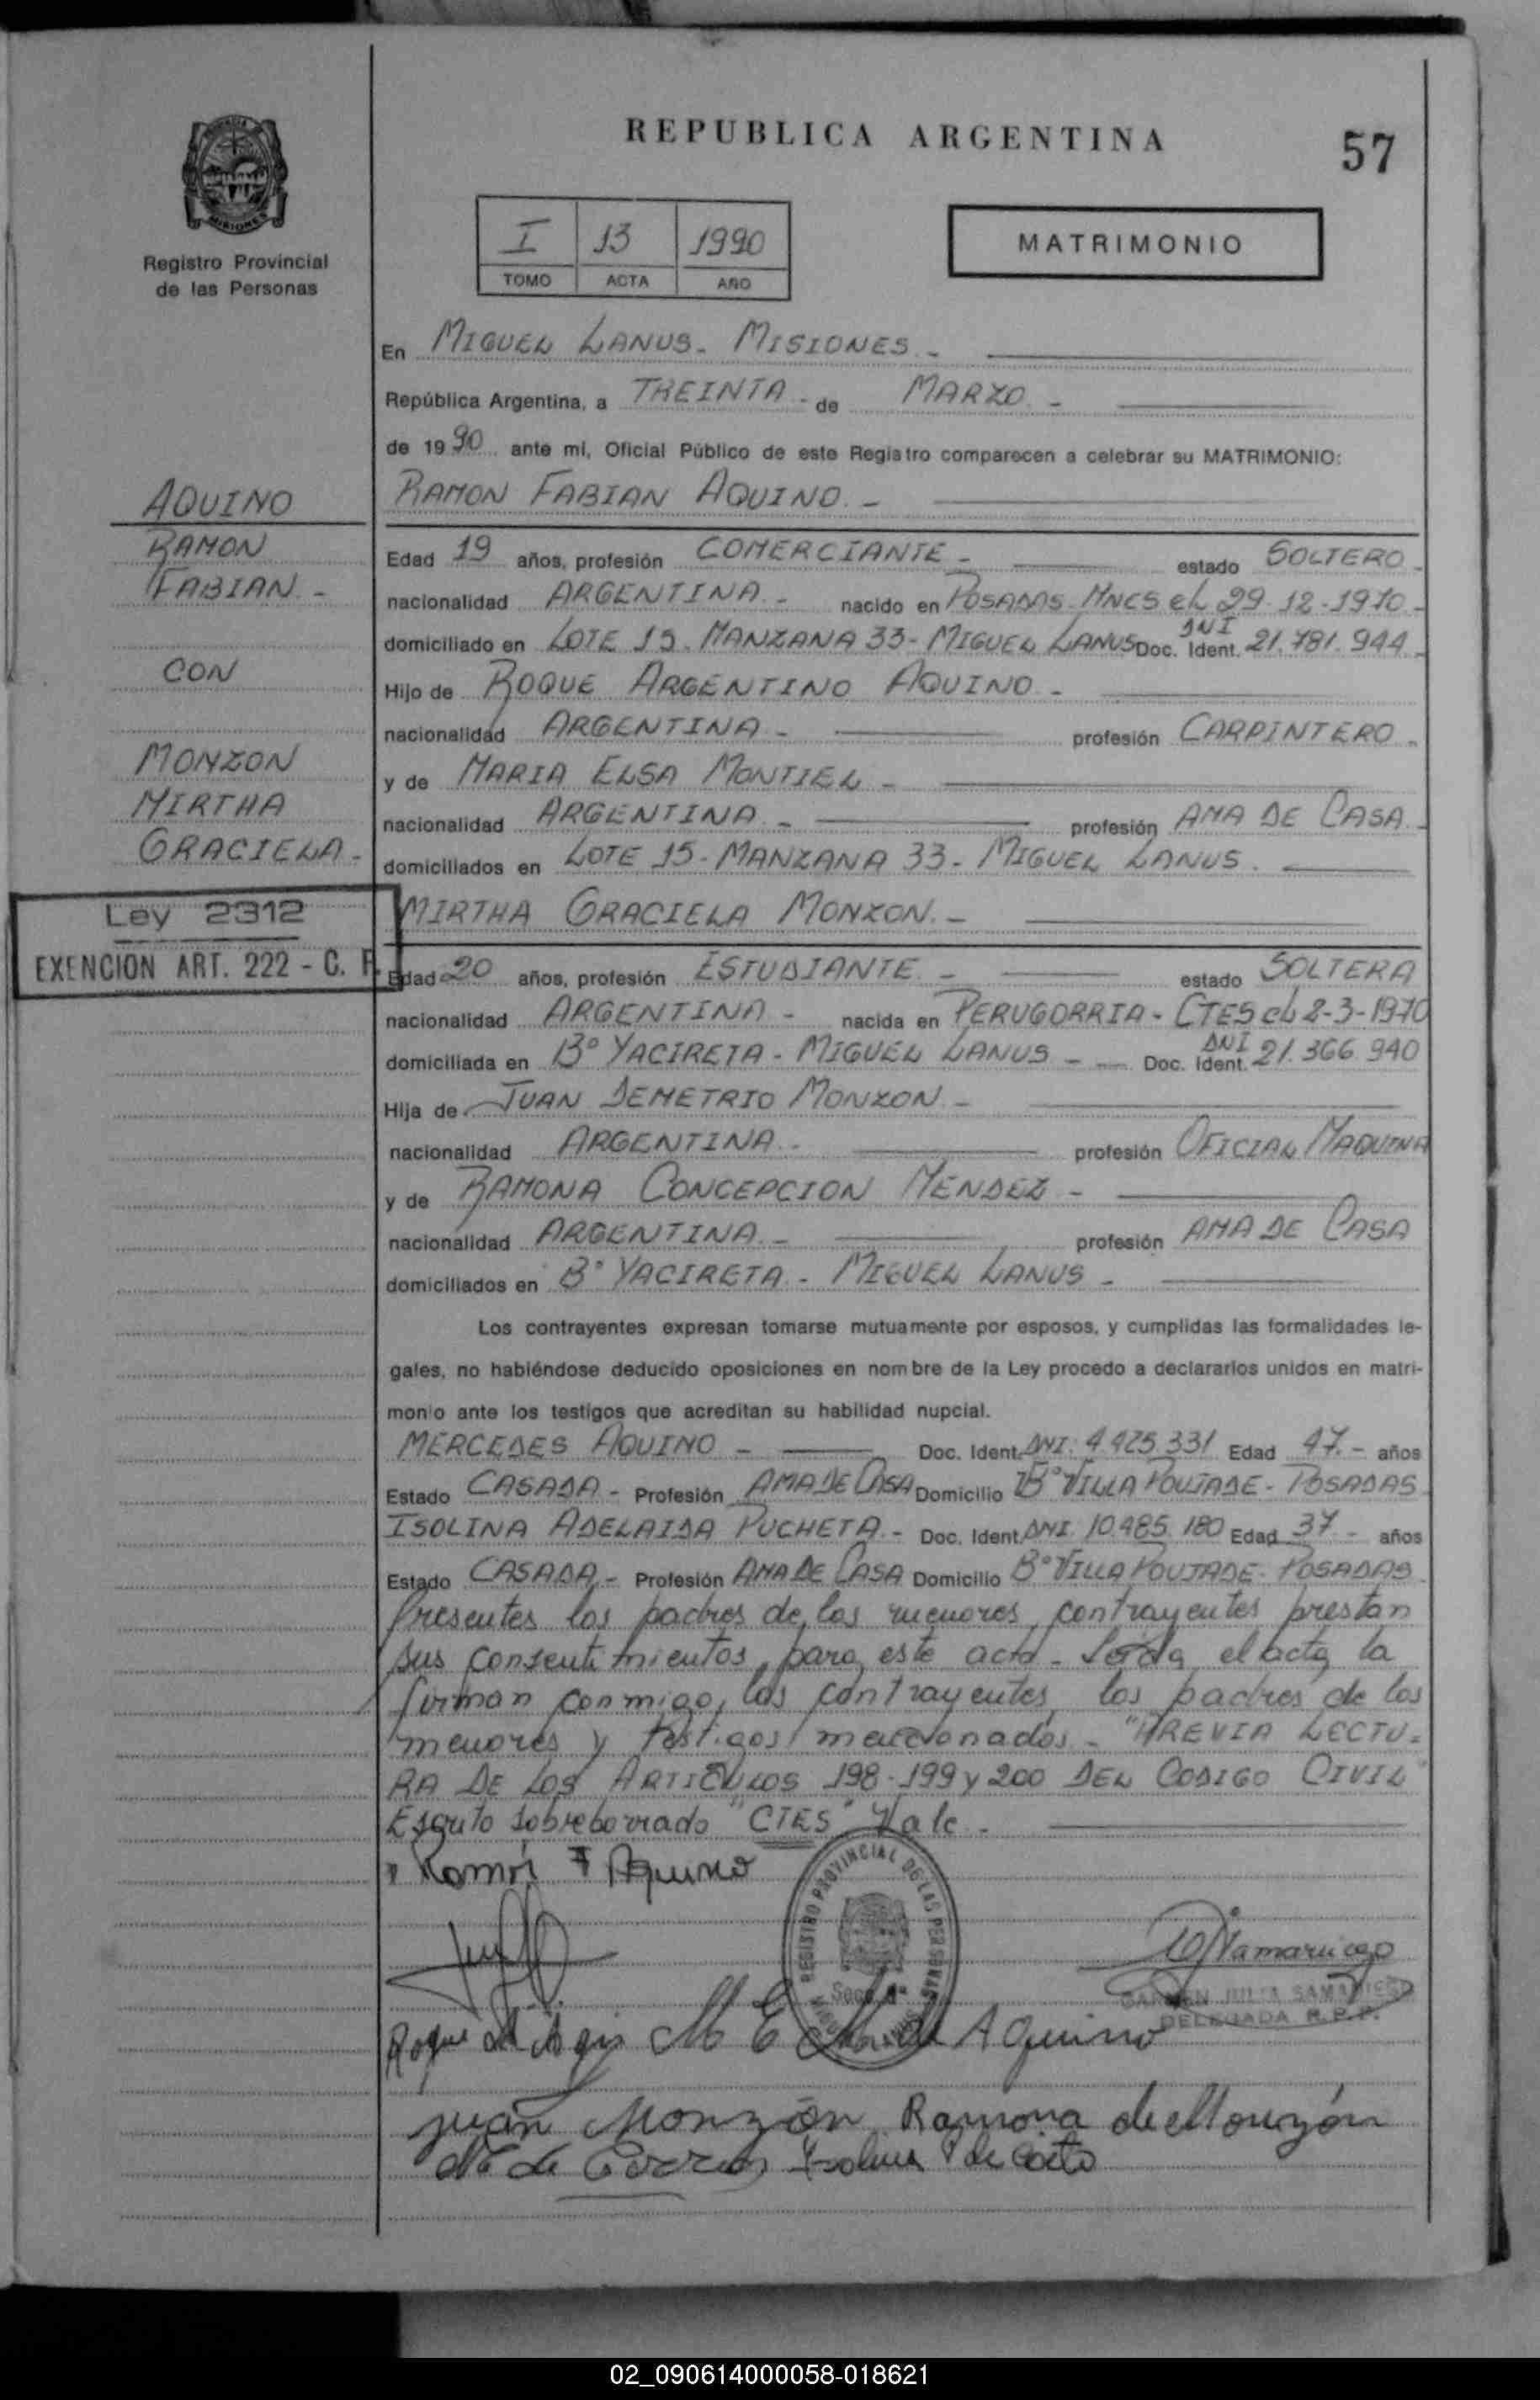 REPUBLICA ARGENTINA
57
I 13 1990
TOMO ACTA AÑO
MATRIMONIO
MISIONES
Registro Provincial
de las Personas
En MIGUEL LANUS - MISIONES -
República Argentina, a TREINTA - de MARZO -
de 1990 ante mi, Oficial Público de este Registro comparecen a celebrar su MATRIMONIO:
RAMON FABIAN AQUINO -
AQUINO
RAMON
FABIAN -
CON
MONZON
MIRTHA
GRACIELA -
Ley 2312
EXENCION ART. 222 - C. F.
Edad 19 años, profesión COMERCIANTE - estado SOLTERO -
nacionalidad ARGENTINA - nacido en POSADAS - MNES el 29-12-1970 -
domiciliado en LOTE 15 - MANZANA 33 - MIGUEL LANUS Doc. Ident. DNI 21.781.944 -
Hijo de ROQUE ARGENTINO AQUINO -
nacionalidad ARGENTINA - profesión CARPINTERO -
y de MARIA ELSA MONTIEL -
nacionalidad ARGENTINA - profesión AMA DE CASA -
domiciliados en LOTE 15 - MANZANA 33 - MIGUEL LANUS -
MIRTHA GRACIELA MONZON -
Edad 20 años, profesión ESTUDIANTE - estado SOLTERA
nacionalidad ARGENTINA - nacida en PERUGORRIA - CTES el 2-3-1970
domiciliada en B° YACIRETA - MIGUEL LANUS - Doc. Ident. DNI 21.366.940
Hija de JUAN DEMETRIO MONZON -
nacionalidad ARGENTINA - profesión OFICIAL MAQUINA
y de RAMONA CONCEPCION MENDEZ -
nacionalidad ARGENTINA - profesión AMA DE CASA
domiciliados en B° YACIRETA - MIGUEL LANUS -
Los contrayentes expresan tomarse mutuamente por esposos, y cumplidas las formalidades le-
gales, no habiéndose deducido oposiciones en nombre de la Ley procedo a declararlos unidos en matri-
monio ante los testigos que acreditan su habilidad nupcial.
MERCEDES AQUINO - Doc. Ident. DNI. 4.425.331 Edad 47 - años
Estado CASADA - Profesión AMA DE CASA Domicilio B° VILLA POUJADE - POSADAS
ISOLINA ADELAIDA PUCHETA - Doc. Ident. DNI. 10.485.180 Edad 37 - años
Estado CASADA - Profesión AMA DE CASA Domicilio B° VILLA POUJADE - POSADAS
Presentes los padres de los menores contrayentes prestan
sus consentimientos para este acto - Leída el acta la
firman conmigo, los contrayentes, los padres de los
menores y testigos mencionados - "PREVIA LECTU-
RA DE LOS ARTICULOS 198-199 y 200 DEL CODIGO CIVIL"
Escrito sobreborrado "CTES" Vale -
Ramón F Aquino
REGISTRO PROVINCIAL DE LAS PERSONAS
CARMEN JULIA SAMANIEGO
DELEGADA R.P.P.
Roque M E de Aquino
Juan Monzón Ramona de Monzón